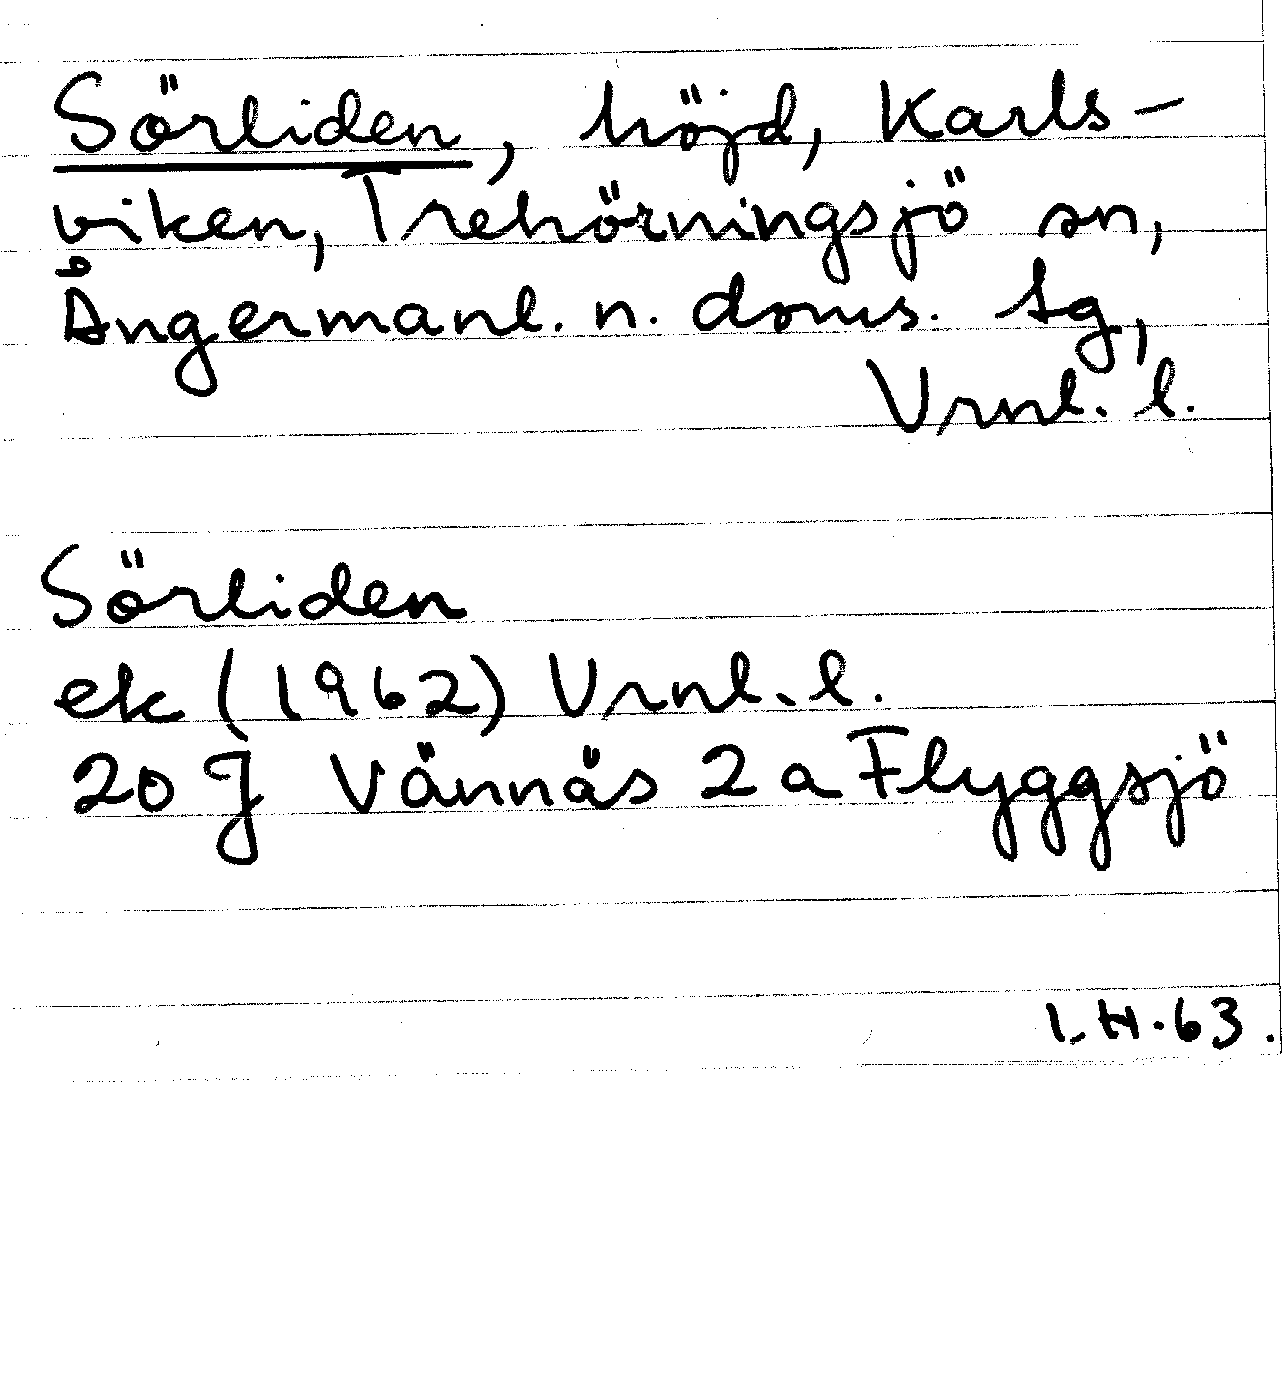 Sörliden, höjd, Karls-
viken, Trehörningsjö sn,
Ångermanl. n. doms. tg,
Vrnl. l.
Sörliden
ek (1962) Vrnl. l.
20 J Vännäs 2 a Flyggsjö
I.H.63.